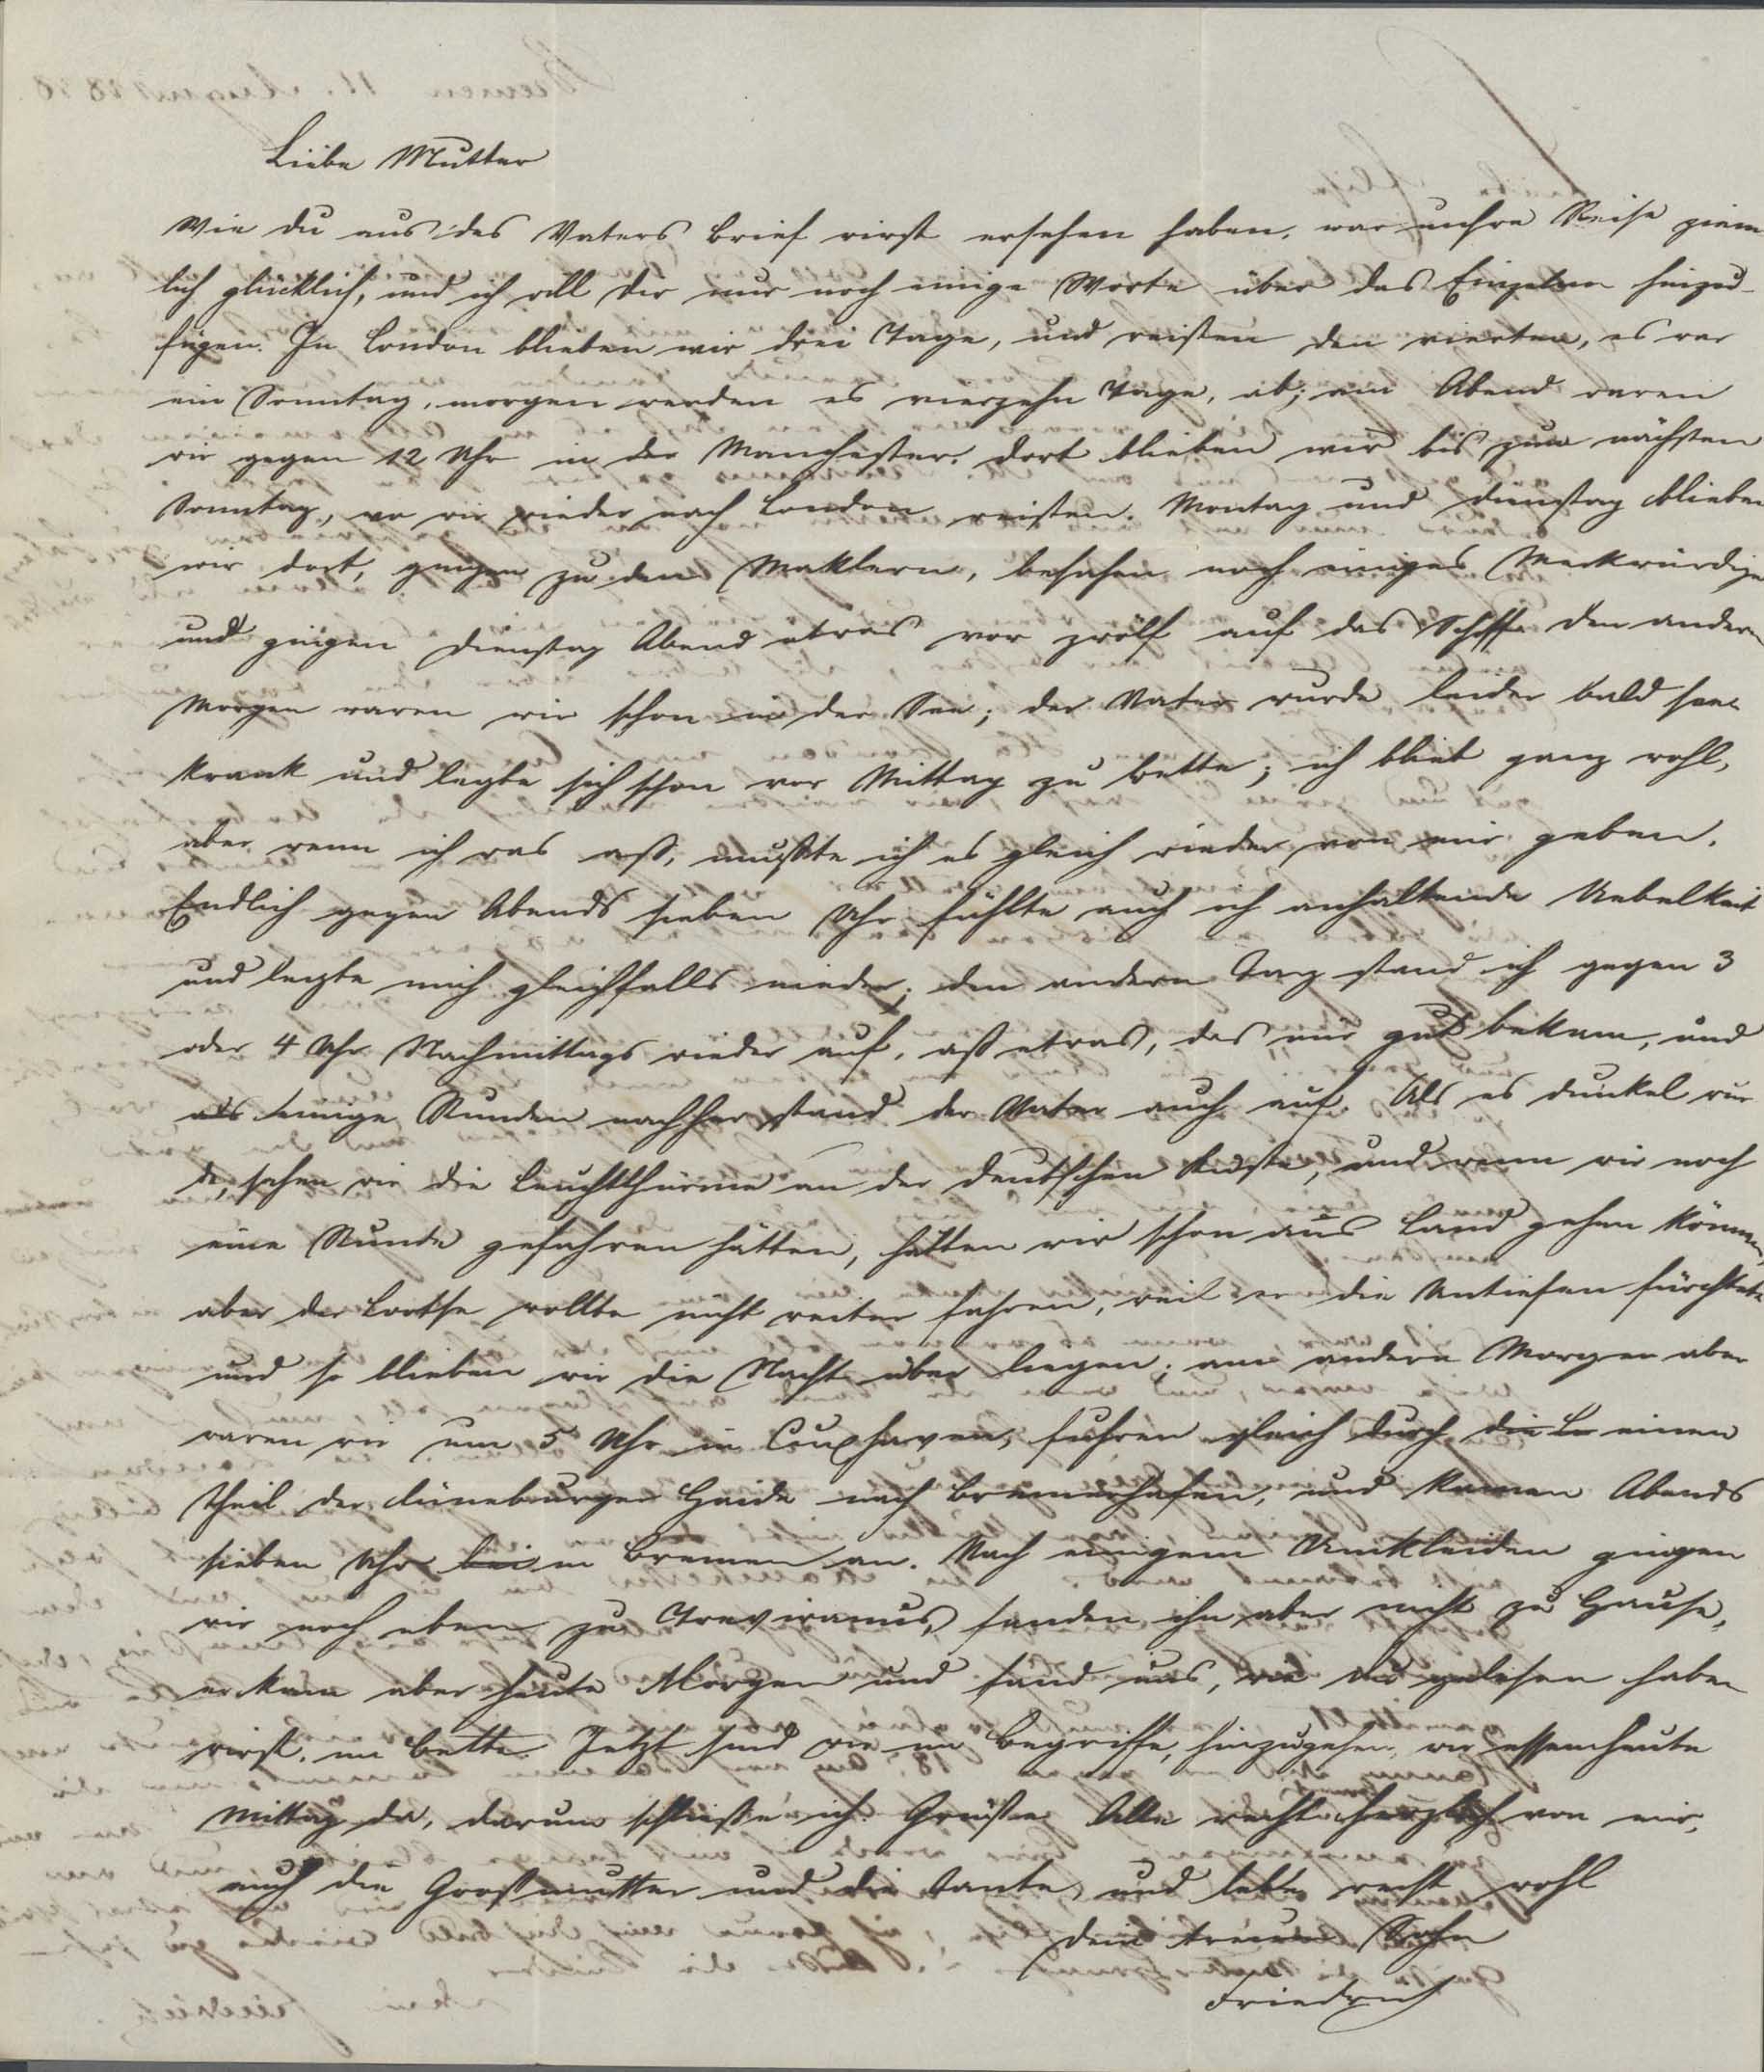 Liebe Mutter
Wie du aus des Vaters Brief wirst ersehen haben, war unsre Reise ziem
lich glücklich, und ich will dir nur noch einige Worte über das Einzelne hinzu-
fügen. In London blieben wir drei Tage, und reisten den vierten, es war
ein Sonntag, morgen werden es vierzehn Tage, ab; am Abend waren
wir gegen 12 Uhr in der Manchester. dort blieben wir bis zum nächsten
Sonntag, wo wir wieder nach London reisten. Montag und dienstag blieben
wir dort, gingen zu den Maklern, besahen noch einiges Merkwürdige
und gingen dienstag Abend etwas vor zwölf auf das Schiff. den andern
Morgen waren wir schon in der See; der Vater wurde leider bald see
krank und legte sich schon vor Mittag zu Bette; ich blieb ganz wohl,
aber wenn ich was aß, mußte ich es gleich wieder von mir geben.
Endlich gegen Abends sieben Uhr fühlte auch ich anhaltende Uebelkeit
und legte mich gleichfalls nieder; den andern Tag stand ich gegen 3
oder 4 Uhr Nachmittags wieder auf, aß etwas, das mir gut bekam, und
als einige Stunden nachher stand der Vater auch auf. Als es dunkel wur
de, sahen wir die Leuchtthürme an der deutschen Küste, und wenn wir noch
eine Stunde gefahren hätten, hätten wir schon ans Land gehen können,
aber der Lootse wollte nicht weiter fahren, weil er die Untiefen fürchtete
und so blieben wir die Nacht über liegen; am andern Morgen aber
waren wir um 5 Uhr in Cuxhaven, fuhren gleich durch die Lu einen
Theil der lüneburger Haide nach Bremerhafen, und kamen Abends
sieben Uhr bei in Bremen an. Nach einigem Umkleiden gingen
wir noch eben zu Treviranus, fanden ihn aber nicht zu Hause,
er kam aber heute Morgen und fand uns, wie du gelesen haben
wirst, im Bette. Jetzt sind wir im Begriffe, hinzugehen, wir essen heute
Mittag da, darum schließe ich. Grüße Alle recht herzlich von mir,
auch die Großmutter und die Tante, und lebe recht wohl
dein treuer Sohn
Friedrich